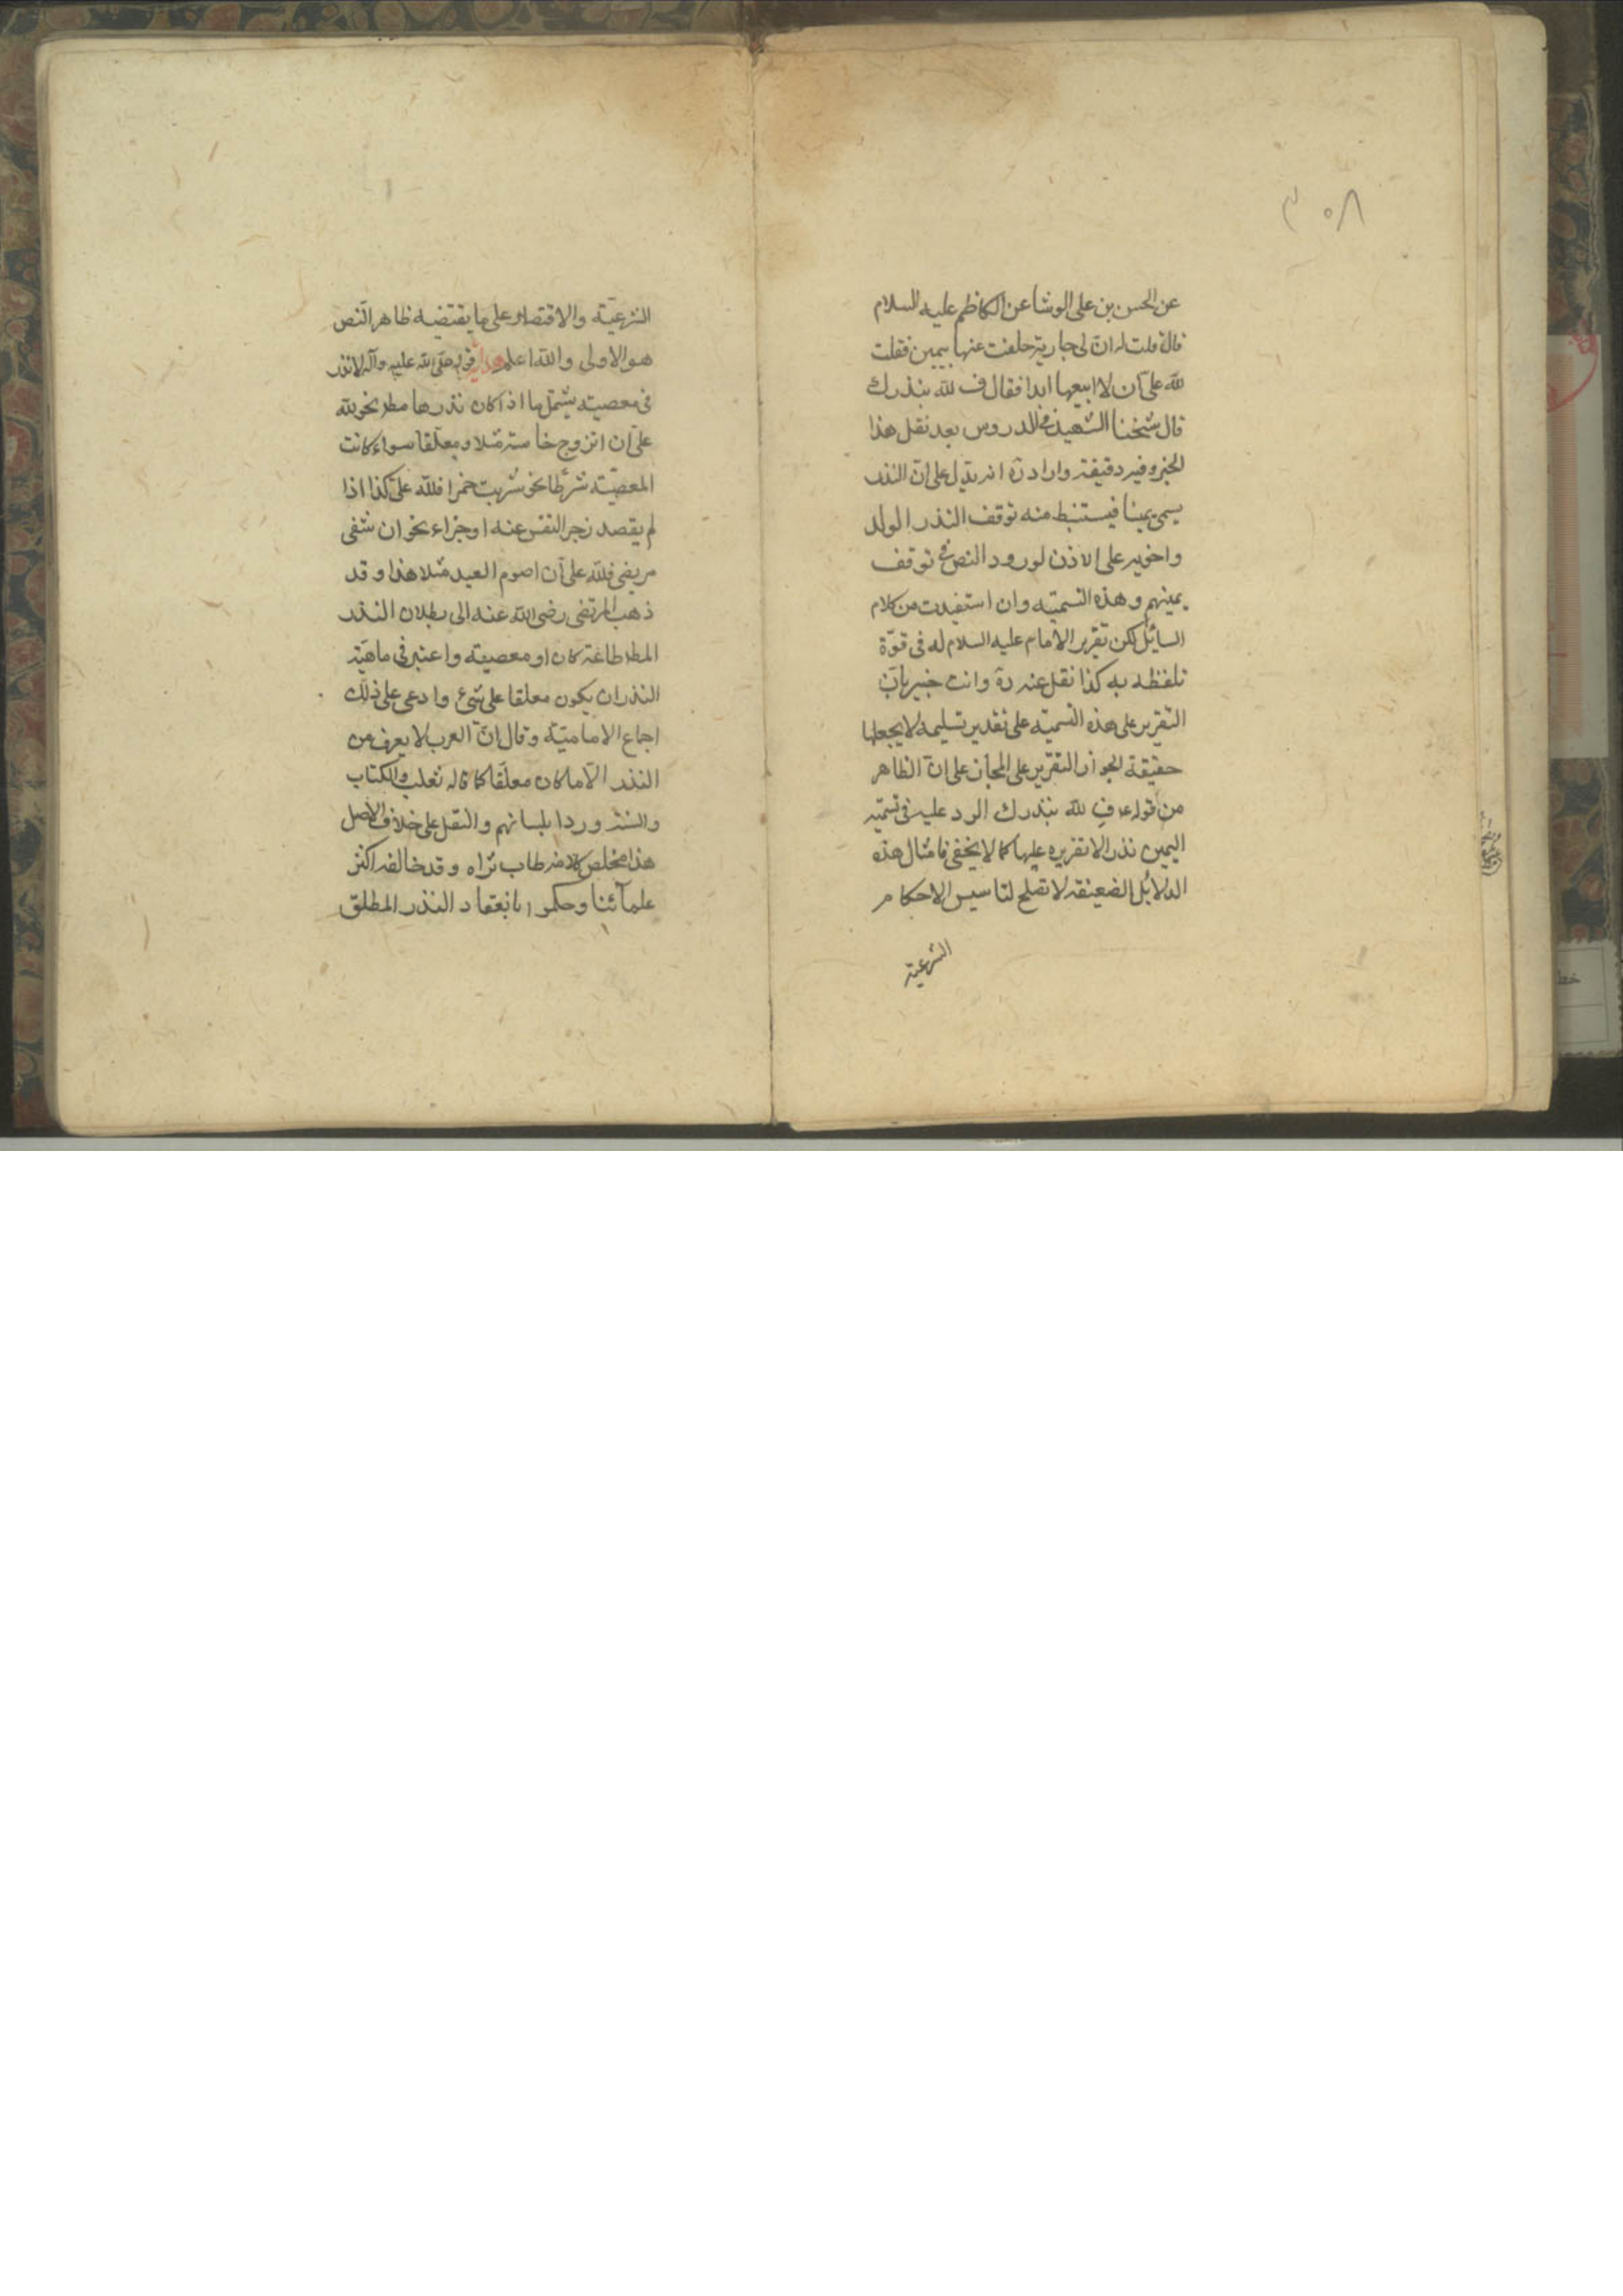 ٣٠٨
عن الحسن بن على الوشا عن الكاظم عليه السلام
قال قلت له ان لى جارية حلفت عنها بيمين فقلت
لله علىّ ان لا ابيعها ابدا فقال ف لله بنذرك
قال شيخنا الشهيد فى الدروس بعد نقل هذا
الخبر وفيه دقيقة واراد ره انه يدل على ان النذر
يسمى يمينا فيستنبط منه توقف النذر الولد
واخويه على الاذن لورود النص فى توقف
يمينهم وهذه التسمية وان استفيدت من كلام
السائل لكن تقرير الامام عليه السلام له فى قوّة
تلفظه به كذا نقل عنه ره وانت خبير بانّ
التقرير على هذه التسمية على تقدير تسليمه لا يجعلها
حقيقة لجواز التقرير على المجاز على انّ الظاهر
من قوله ع ف لله بنذرك الرد عليه فى تسميته
اليمين نذرا لا تقريره عليها كما لا يخفى فامثال هذه
الدلائل الضعيفة لا تصلح لتاسيس الاحكام
الشرعية
الشرعيّة والاقتصار على ما يقتضيه ظاهر النّص
هو الاولى والله اعلم هداية قوله صلى الله عليه وآله لا نذر
فى معصية يشمل ما اذا كان نذرها مط نحو لله
علىّ ان اتزوج خامسة مثلا ومعلّقا سواء كانت
المعصيّة شرطا نحو شربت خمرا فلله علىّ كذا اذا
لم يقصد زجر النفس عنه او جزاء نحو ان شفى
مريضى فلله علىّ ان اصوم العيد مثلا هذا وقد
ذهب المرتضى رضى الله عنه الى بطلان النذر
المط طاعة كان او معصية واعتبر فى ماهيّة
النذر ان يكون معلقا على شئ وادعى على ذلك
اجماع الاماميّة وقال انّ العرب لا يعرف من
النذر الّا ما كان معلّقا كما قاله ثعلب والكتاب
والسنة وردا بلسانهم والنقل على خلاف الاصل
هذا مخلص كلامه طاب ثراه وقد خالفه اكثر
علمآئنا وحكموا بانعقاد النذر المطلق